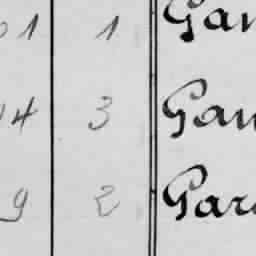 01 1 Gan
04 3 Gan
9 2 Gar